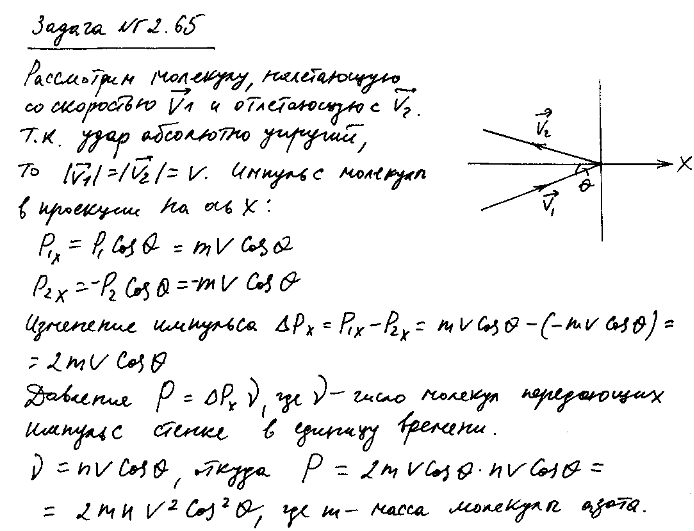 Задача №2.65
Рассмотрим молекулу, налетающую
со скоростью V⃗1 и отлетающую с V⃗2.
Т.к. удар абсолютно упругий,
то |V⃗1|=|V⃗2|= V. Импульс молекулы
в проекции на ось X:
P1x = P1 Cos θ = mV Cos θ
P2x = -P2 Cos θ = -mV Cos θ
Изменение импульса ΔPx = P1x - P2x = mV Cos θ - (-mV Cos θ) =
= 2mV Cos θ
Давление P = ΔPx ν, где ν - число молекул передающих
импульс стенке в единицу времени.
ν = nV Cos θ, откуда P = 2mV Cos θ · nV Cos θ =
= 2mn V² Cos² θ, где m - масса молекулы азота.
V⃗2
X
θ
V⃗1